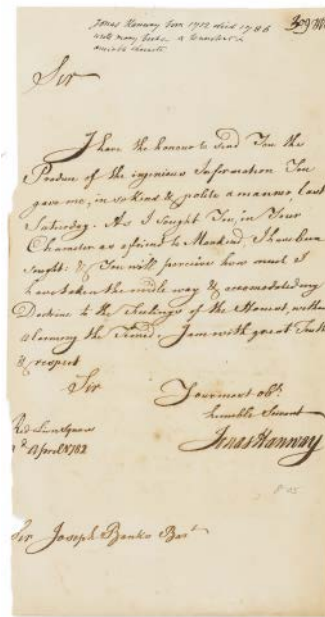 Jonas Hanway born 1712 died 1786
Sir
I have the honour to send You the
Produce of the ingenious Information You
gave me, in so kind & polite a manner last
Saturday. As I sought You, in Your
Character as a friend to Mankind, I have been
sought: & You will perceive how much I
have taken the middle way & accomodated my
Doctrine to the Feelings of the Honest, without
alarming the Timid. I am with great Truth
& respect
Sir
Your most obt.
humble Servant
Jonas Hanway
Red Lion Square
April 1782
Sir Joseph Banks Bart